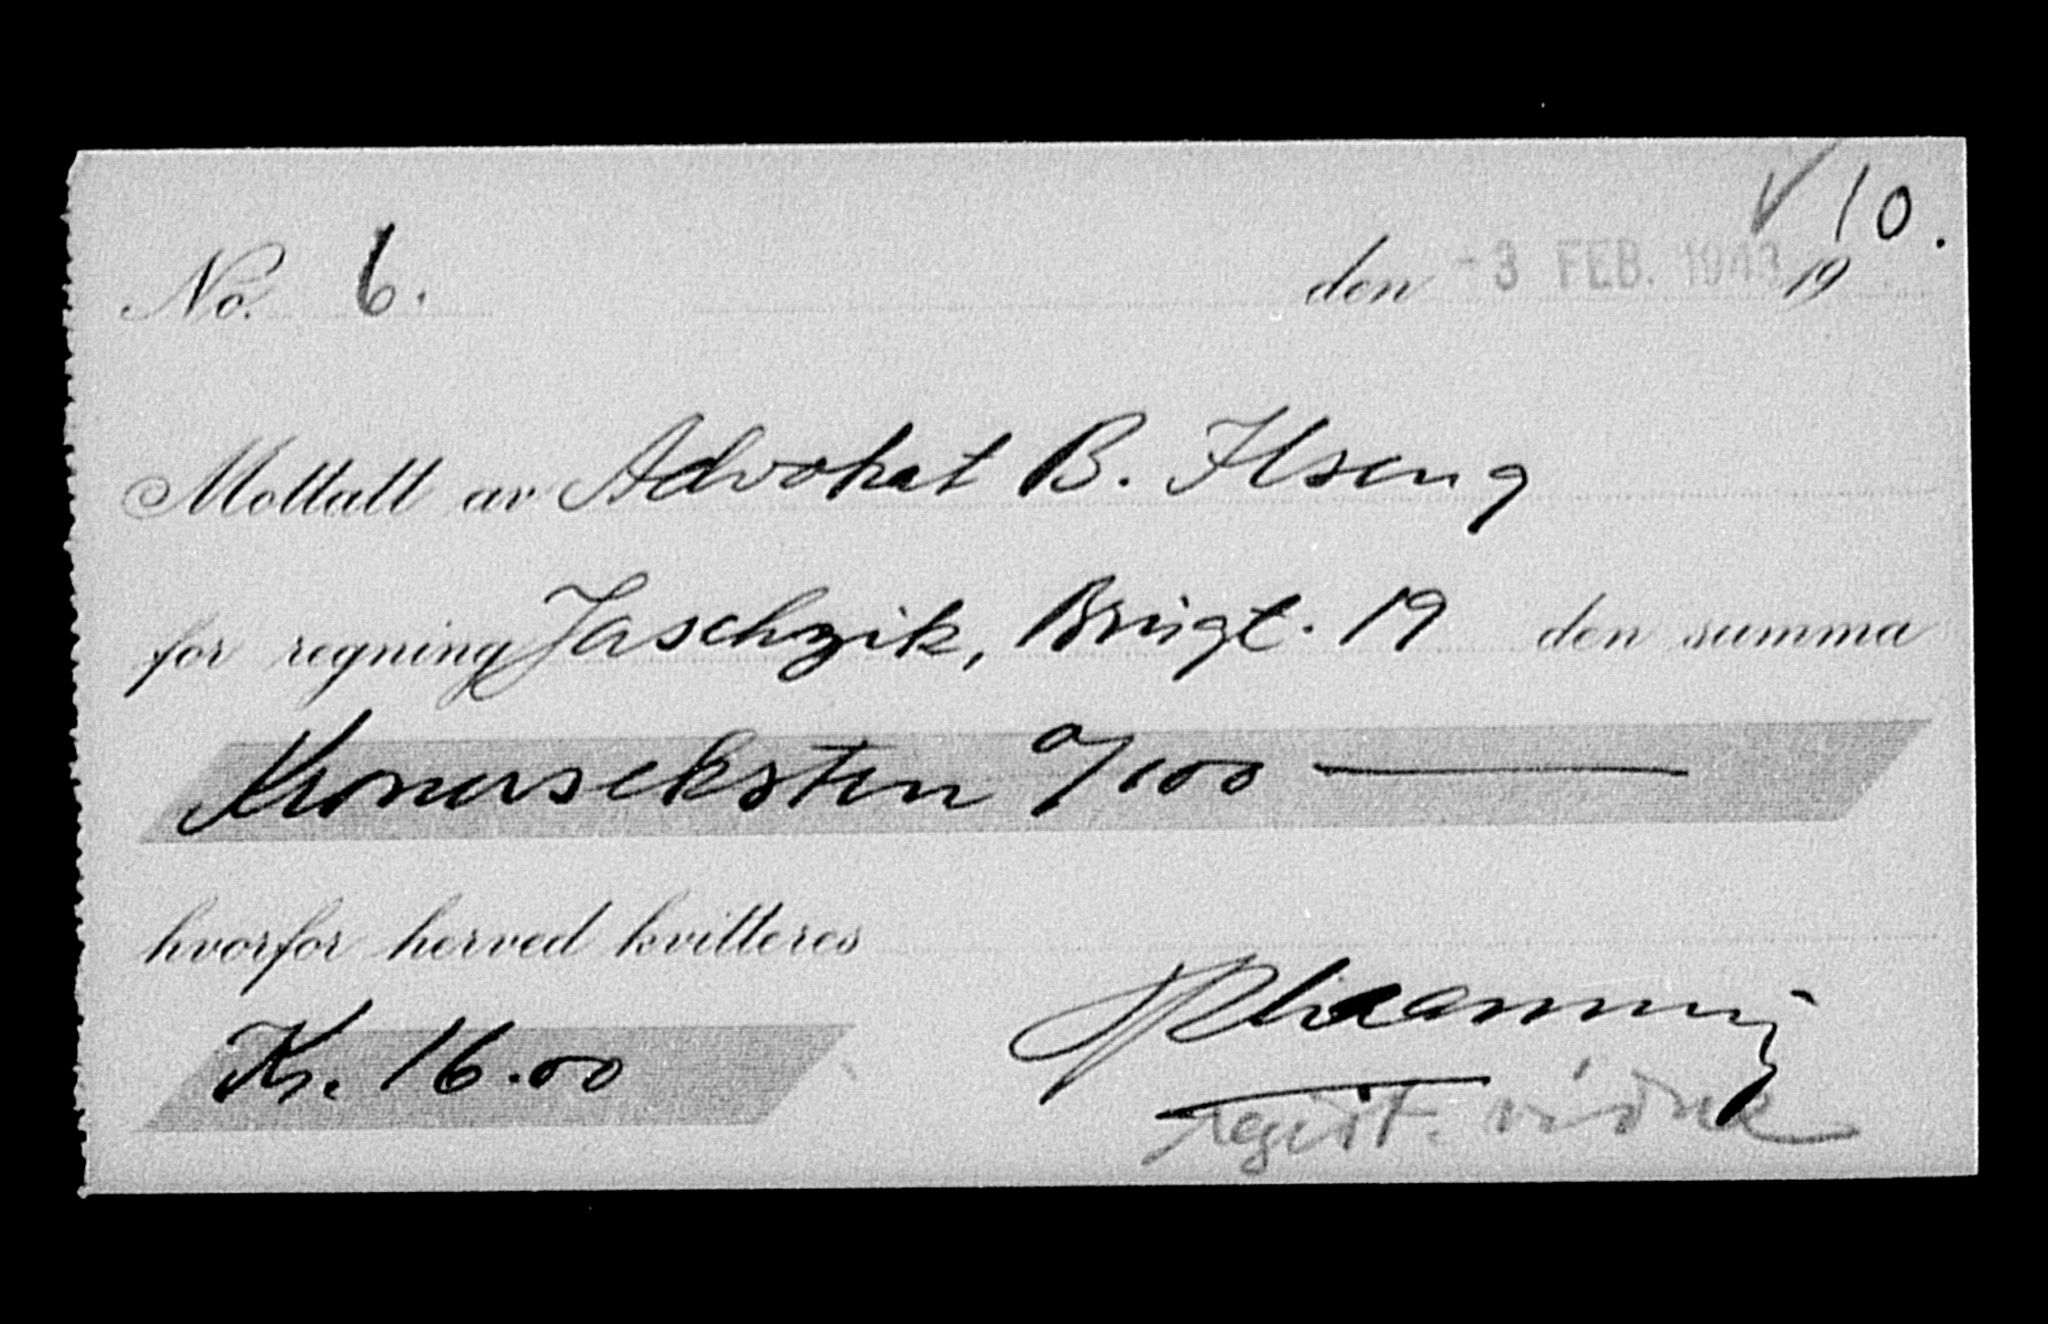 10.
No. 6. den -3 FEB. 1943 19
Mottatt av Advokat B. Ilseng
for regning Jaschzik, Brugt. 19 den summa
Kronerseksten 0/100
hvorfor herved kvitteres
Kr. 16.00
regist. vidne